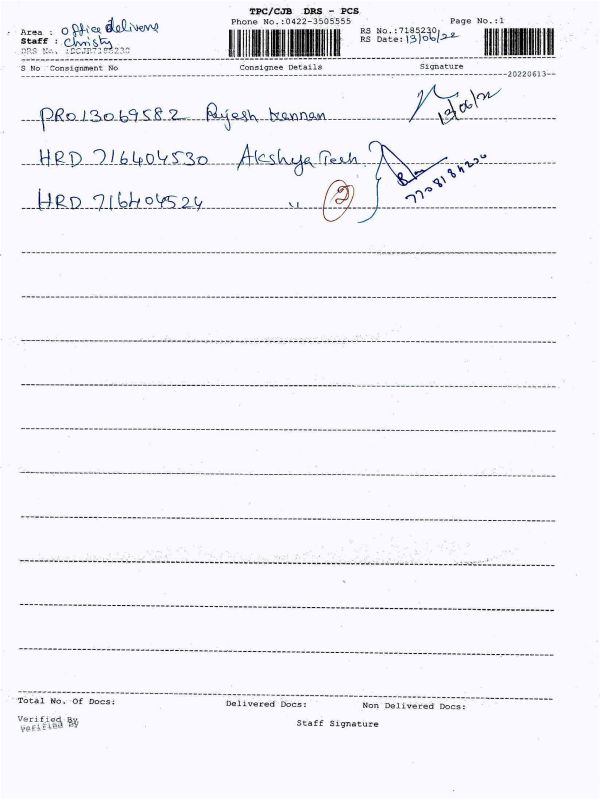 TPC/CJB DRS - PCS
Phone No.:0422-3505555 Page No.:1
Area : Office delivery
Staff : Christy
DRS No. :DCJB7185230
RS No.:7185230
RS Date:13/06/22
S No Consignment No Consignee Details Signature
20220613
PRO13069582 Rajesh kannan 13/06/22
HRD 716404530 Akshya Tech
HRD 716404524 " 2
7708184236
Total No. Of Docs: Delivered Docs: Non Delivered Docs:
Verified By
Verified By
Staff Signature